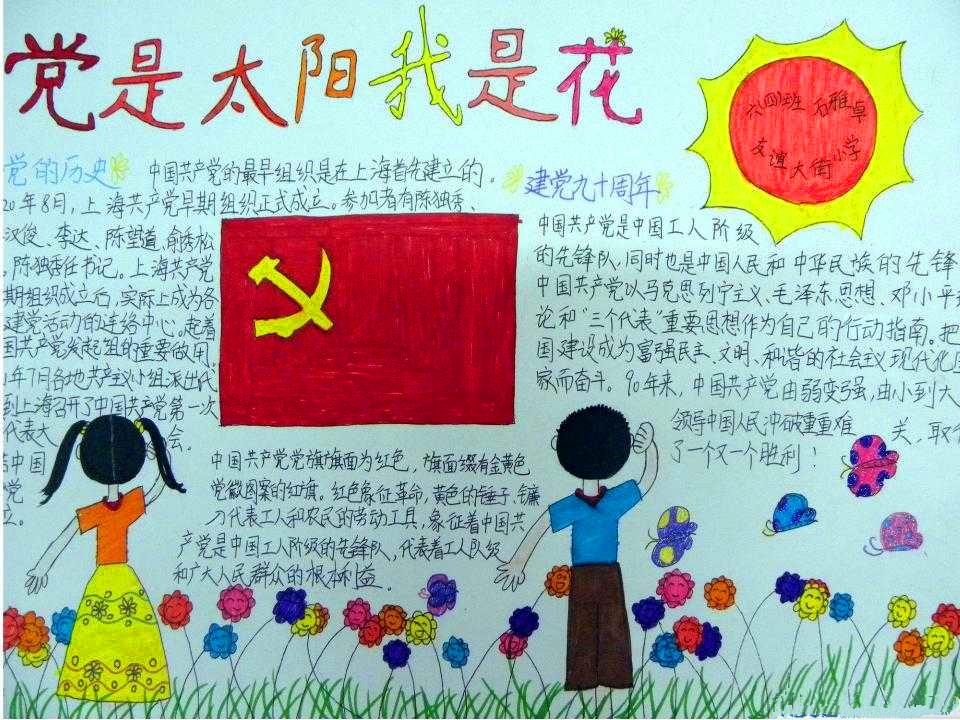 党是太阳我是花
六(四)班 石雅卓
友谊大街小学
党的历史
中国共产党的最早组织是在上海首先建立的。
20年8月,上海共产党早期组织正式成立。参加者有陈独秀、
汉俊、李达、陈望道、俞秀松
,陈独秀任书记。上海共产党
期组织成立后,实际上成为各
建党活动的连络中心。起着
国共产党发起组的重要做用。
1年7月各地共产主义小组派出代
到上海召开了中国共产党第一次
代表大会。
中国
党
立。
建党九十周年
中国共产党是中国工人阶级
的先锋队,同时也是中国人民和中华民族的先锋
中国共产党以马克思列宁主义、毛泽东思想、邓小平理
论和“三个代表”重要思想作为自己的行动指南。把
国建设成为富强民主、文明、和谐的社会主义现代化国
家而奋斗。90年来,中国共产党由弱变强,由小到大
领导中国人民冲破重重难关,取得
了一个又一个胜利!
中国共产党党旗旗面为红色,旗面缀有金黄色
党徽图案的红旗。红色象征革命,黄色的锤子、镰
刀代表工人和农民的劳动工具,象征着中国共
产党是中国工人阶级的先锋队,代表着工人队级
和广大人民群众的根本利益。